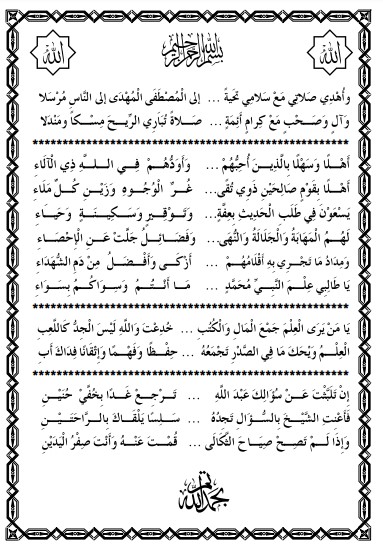 الله
بسم الله الرحمن الرحيم
الله
وأُهْدِي صَلاتِي مَعْ سَلامِي تَحِيةً ... إلى الْمُصْطَفَى الْمُهْدَى إلى النَّاسِ مُرْسَلا
وَآلٍ وَصَحْبٍ مَعْ كِرامٍ أَئِمَةٍ ... صَلاةً تُبَارِي الرِّيحَ مِسْكاً وَمَنْدَلا
********************
أَهْلاً وَسَهْلًا بِالَّذِينَ أُحِبُّهُمْ ... وَأَوَدُّهُمْ فِي اللهِ ذِي الْآلَاءِ
أَهْلًا بِقَوْمٍ صَالِحِينَ ذَوِي تُقًى ... غُرِّ الْوُجُوهِ وَزَيْنِ كُلِّ مَلَاءِ
يَسْعَوْنَ فِي طَلَبِ الْحَدِيثِ بِعِفَّةٍ ... وَتَوْقِيرٍ وَسَكِينَةٍ وَحَيَاءِ
لَهُمُ الْمَهَابَةُ وَالْجَلَالَةُ وَالنُّهَى ... وَفَضَائِلٌ جَلَّتْ عَنِ الْإِحْصَاءِ
وَمِدَادُ مَا تَجْرِي بِهِ أَقْلَامُهُمْ ... أَزْكَى وَأَفْضَلُ مِنْ دَمِ الشُّهَدَاءِ
يَا طَالِبِي عِلْمِ النَّبِيِّ مُحَمَّدٍ ... مَا أَنْتُمُ وَسِوَاكُمُ بِسَوَاءِ
********************
يَا مَنْ يَرَى الْعِلْمَ جَمْعَ الْمَالِ وَالْكُتُبِ ... خُدِعْتَ وَاللهِ لَيْسَ الْجِدُّ كَاللَّعِبِ
الْعِلْمُ وَيْحَكَ مَا فِي الصَّدْرِ تَجْمَعُهُ ... حِفْظًا وَفَهْمًا وَإِتْقَانًا فِدَاكَ أَبِ
********************
إِنْ تَلَبَّثْتَ عَنْ سُؤَالِكَ عَبْدَ اللهِ ... تَرْجِعْ غَدًا بِخُفَّيْ حُنَيْنِ
فَأَعْنِتِ الشَّيْخَ بِالسُّؤَالِ تَجِدْهُ ... سَلِسًا يَلْقَاكَ بِالرَّاحَتَيْنِ
وَإِذَا لَمْ تَصِحْ صِيَاحَ الثَّكَالَى ... قُمْتَ عَنْهُ وَأَنْتَ صِفْرُ الْيَدَيْنِ
تم بحمد الله